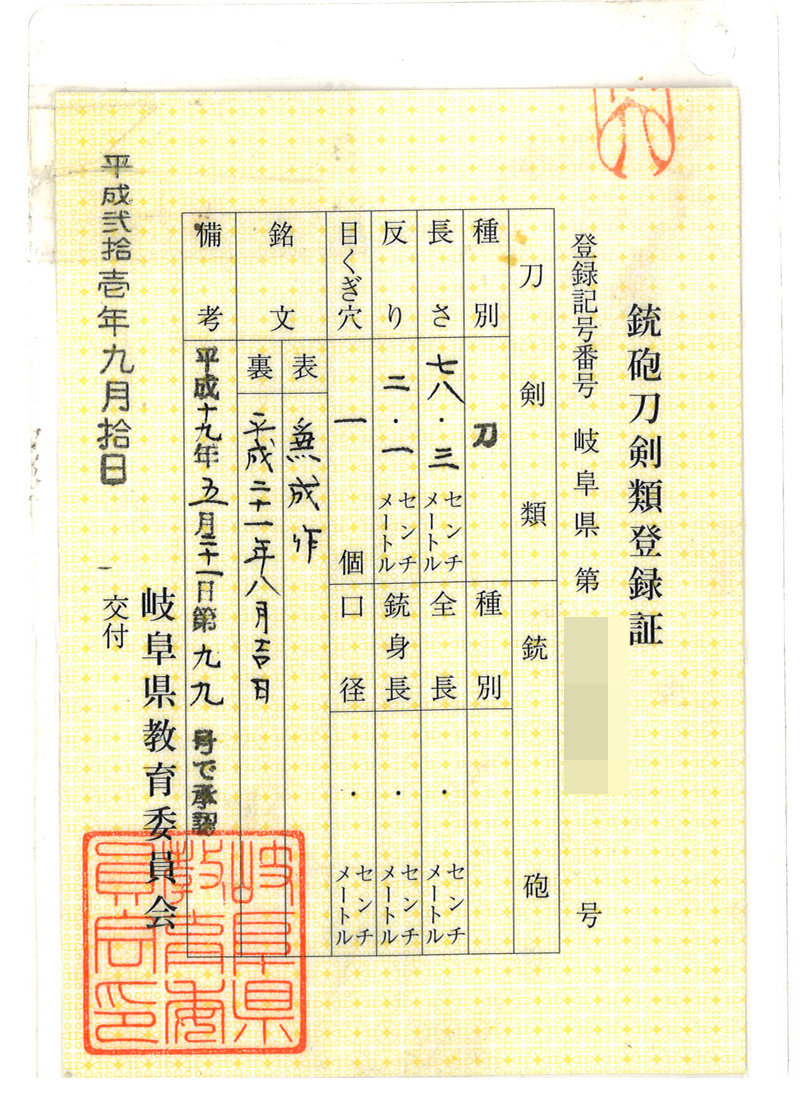 銃砲刀剣類登録証
登録記号番号 岐阜県 第 号
刀剣類 銃砲
種別 刀 種別
長さ 七八・三 センチメートル 全長 ・ センチメートル
反り 二・一 センチメートル 銃身長 ・ センチメートル
目くぎ穴 一 個 口径 ・ センチメートル
銘文 表 兼成作
裏 平成二十一年八月吉日
備考 平成十九年五月三十一日第九九号で承認
岐阜県教育委員会
交付
平成弐拾壱年九月拾日
岐阜県
教育委
員会印